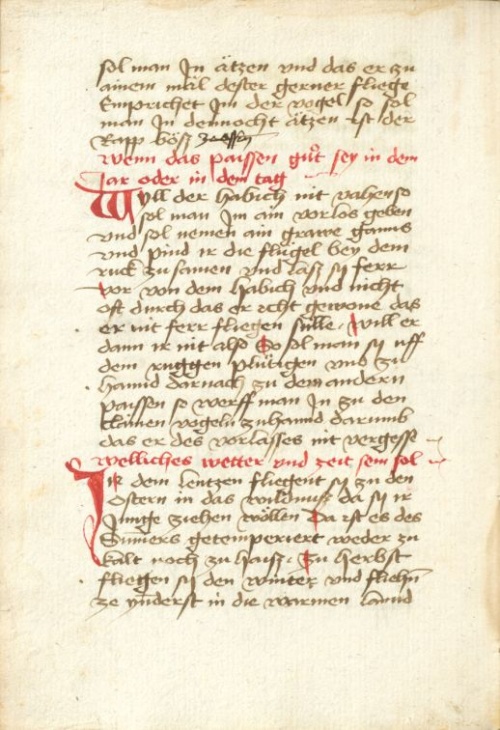 sol man In ätzen vnd das er zu
ainem mäl dester gerner fliege
Emprichet Im der vogel so sol
man In dennocht ätzen ist der
Rapp böß zeessen
wenn das paissen gůt sey in dem
Jar oder in dem tag
Wyll der habich nit vahen so
sol man Im ain vorlos geben
vnd sol nemen ain grawe ganns
vnd pind ir die flügel bey dem
ruck zu samen vnd lass sy ferr
vor von dem habich vnd nicht
oft durch das er icht gewone das
er nit ferr fliegen sülle. will er
dann ir nit also So sol man sy vff
dem ruggen plütigen vnd zu
hannd darnach zu dem andern
paissen so werff man In zu den
klainen vogeln zuhannd darumb
das er des vorlasses nit vergesse
welliches wetter vnd zeit sein sol
In dem lentzen fliegent sy zu den
Ostern in das wildnuß da sy ir
Junge ziehen wöllen Da ist es des
Sumers getemperiert weder zu
kalt noch zu haiß. Zu herbst
fliegen sy den winter vnd fliehn
ze ynderst in die warmen lannd